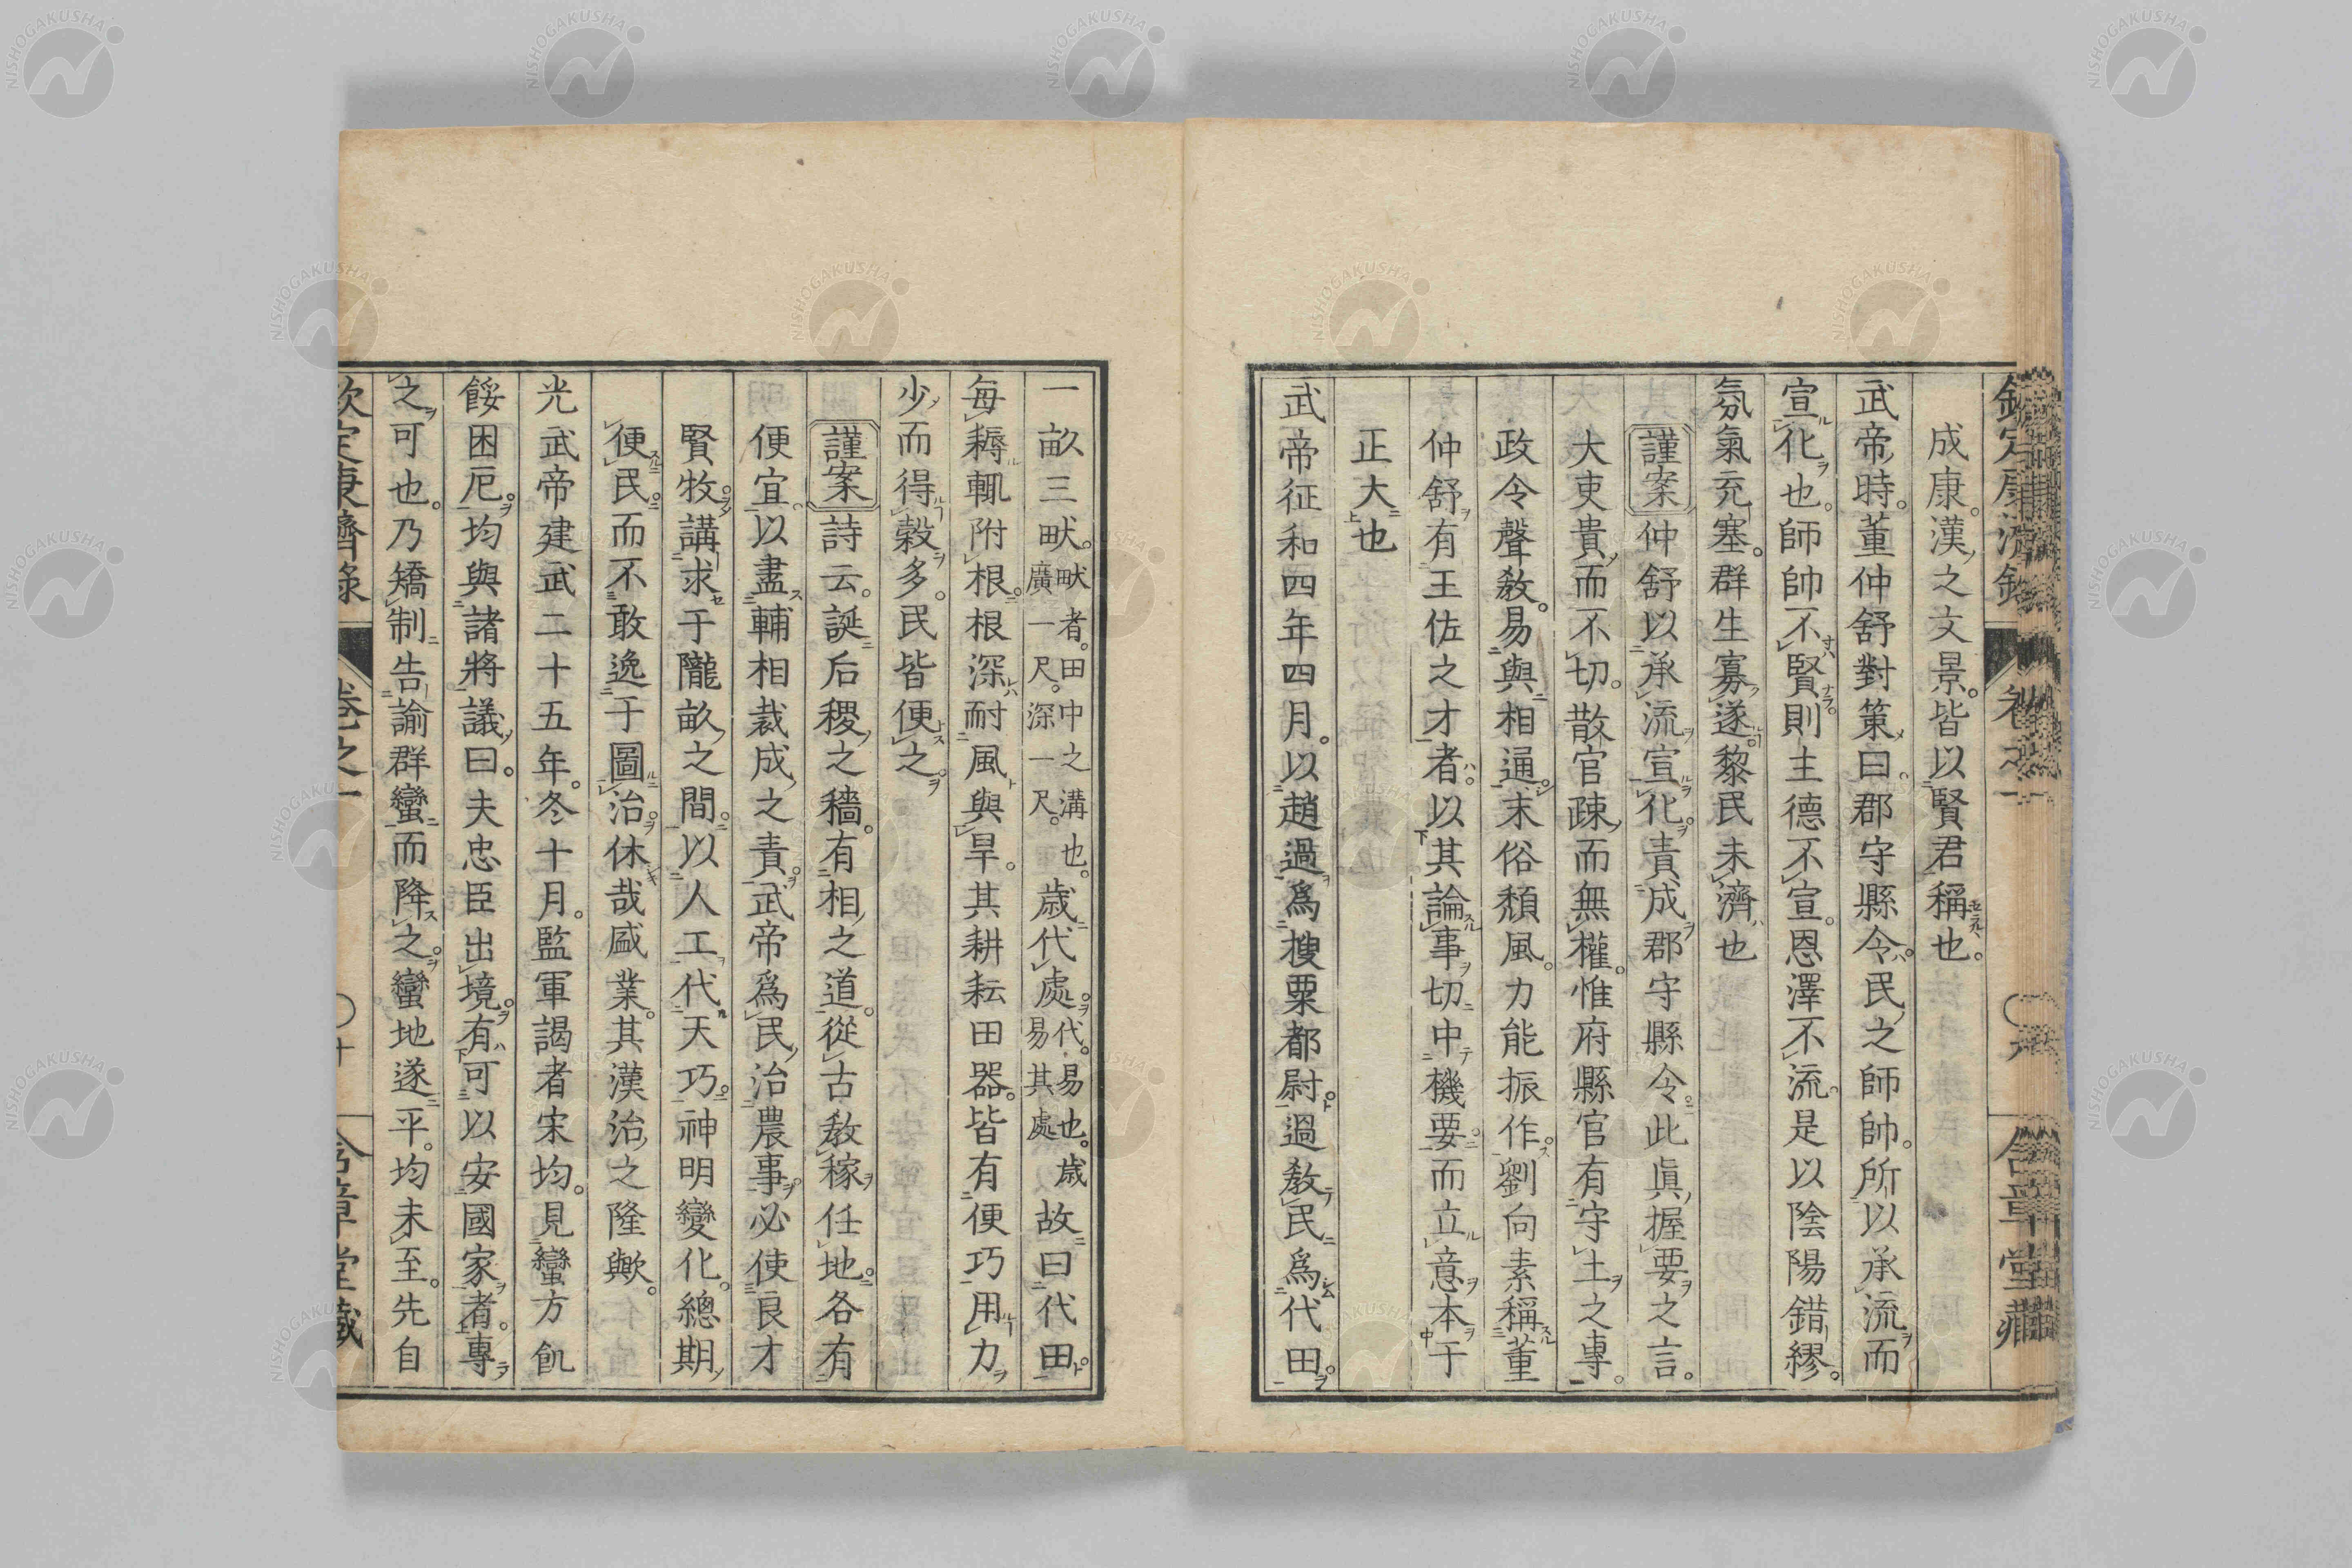 成康。漢之文景。皆以賢君稱也。
武帝時。董仲舒對策曰。郡守縣令。民之師帥。所以承流而
宣化也。師帥不賢。則主德不宣。恩澤不流。是以陰陽錯繆。
氛氣充塞。群生寡遂。黎民未濟也
謹案仲舒以承流宣化。責成郡守縣令。此眞握要之言。
大吏貴而不切。散官疎而無權。惟府縣官有守土之專。
政令聲敎。易與相通。末俗頽風。力能振作。劉向素稱董
仲舒有王佐之才者。以其論事切中機要。而立意本于
正大也
武帝征和四年四月。以趙過爲搜粟都尉。過敎民爲代田。
一畝三畎。畎者。田中之溝也。廣一尺。深一尺。歲代處。代。易也。歲易其處。故曰代田。
每耨輒附根。根深耐風與旱。其耕耘田器。皆有便巧。用力
少而得穀多。民皆便之。
謹案詩云。誕后稷之穡。有相之道。從古敎稼任地。各有
便宜。以盡輔相裁成之責。武帝爲民治農事。必使良才
賢牧。講求于隴畝之間。以人工代天巧。神明變化。總期
便民。而不敢逸于圖治。休哉盛業。其漢治之隆歟。
光武帝建武二十五年。冬十月。監軍謁者宋均。見蠻方飢
餒困厄。均與諸將議曰。夫忠臣出境。有可以安國家者。專
之可也。乃矯制告諭群蠻而降之。蠻地遂平。均未至。先自
欽定康濟錄　卷之一　〇十　含章堂藏